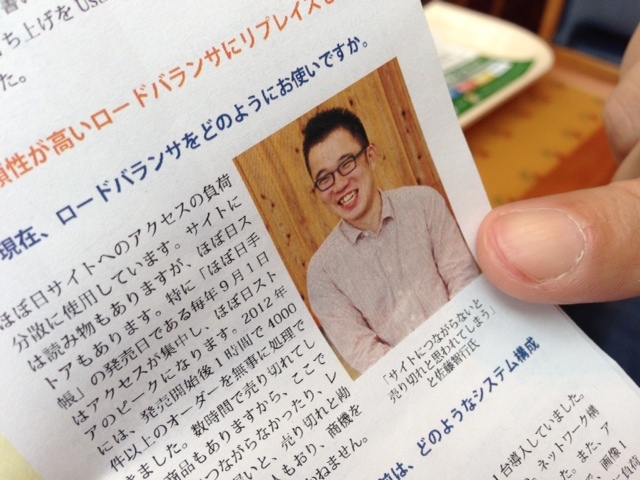 ち上げを Usa
た。
頼性が高いロードバランサにリプレイスし
現在、ロードバランサをどのようにお使いですか。
ほぼ日サイトへのアクセスの負荷
分散に使用しています。サイトに
は読み物もありますが、ほぼ日ス
トアもあります。特に「ほぼ日手
帳」の発売日である毎年9月1日
はアクセスが集中し、ほぼ日スト
アのピークになります。2012年
には、発売開始後1時間で4000
件以上のオーダーを無事に処理で
きました。数時間で売り切れてし
商品もありますから、ここで
つながらなかったり、レ
悪いと、売り切れと勘
人もおり、商機を
かねません。
「サイトにつながらないと
売り切れと思われてしまう」
と佐藤智行氏
前は、どのようなシステム構成
台導入していました。
。ネットワーク構
た。また、ア
で、画像1